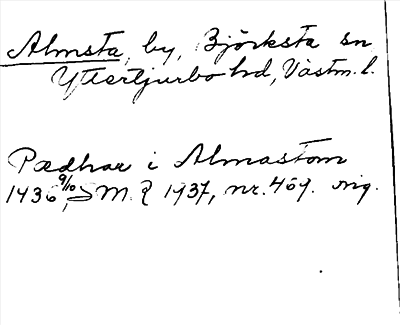 Almsta, by, Björksta sn
Yttertjurbo hd, Västm. l.
Pædhar i Almastom
1436 9/10, SMR 1937, nr. 469. orig.